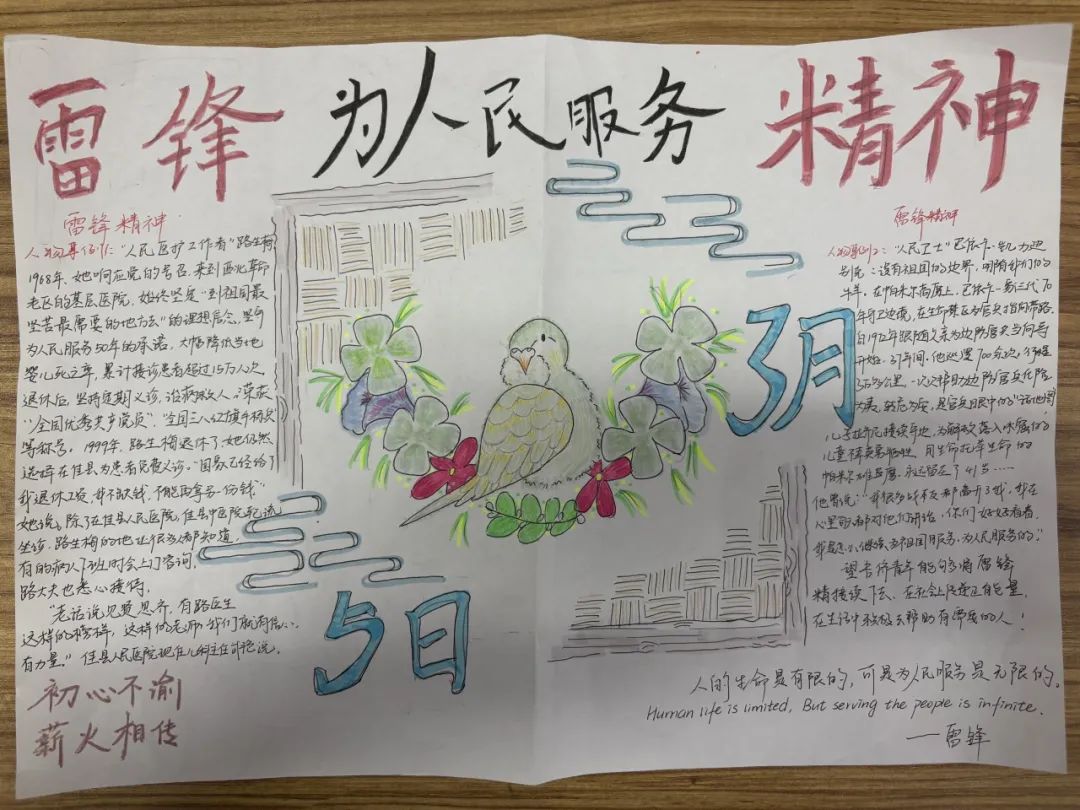 雷锋 为人民服务 精神
雷锋精神
人物事例1:“人民医护工作者”路生梅
1968年,她响应党的号召,来到西北革命
老区的基层医院,始终坚定“到祖国最
坚苦最需要的地方去”的理想信念,坚守
为人民服务50年的承诺,大幅降低当地
婴儿死亡率,累计接诊患者超过15万人次,
退休后,坚持定期义诊,治病救人。荣获
“全国优秀共产党员”,“全国三八红旗手标兵”
等称号。1999年,路生梅退休了,她仍然
选择在佳县为患者免费义诊。“国家已经给了
我退休工资,我不缺钱,不能再拿另一份钱”
她说。除了在佳县人民医院,佳县中医院轮流
坐诊,路生梅的地址很多人都知道,
有的病人下班时会上门咨询,
路大夫也悉心接待。
“老话说见贤思齐,有路医生
这样的榜样,这样的老师,我们就有信
有力量。”佳县人民医院现任儿科主任 说。
初心不谕
薪火相传
3月
5日
雷锋精神
人物事例2:“人民卫士”巴依卡·凯力迪
别克:没有祖国的边界,哪有我们的
牛羊。在帕米尔高原上,巴依卡一家三代70
年守卫边境,在生命禁区为官兵指向带路
自1972年跟随父亲为边防官兵当向导
开始,37年间,他巡逻700余次,行程
3万多公里,一次次帮助边防官兵化险
为夷,转危为安,是官兵眼中的“活地图”
儿子拉齐尼接续守边,为解救落入冰窟的
儿童不幸英勇牺牲,用生命托举生命的
帕米尔雄鹰,永远留在了41岁……
他曾说:“我很多战友都离开了我,我在
心里 都对他们讲话,你们好好看看,
我是怎么继续为祖国服务,为人民服务的。”
望书侨青年能够将雷锋
精神接续下去,在社会上传递正能量,
在生活中积极去帮助有需要的人!
人的生命是有限的,可是为人民服务是无限的。
Human life is limited, But serving the people is infinite.
——雷锋